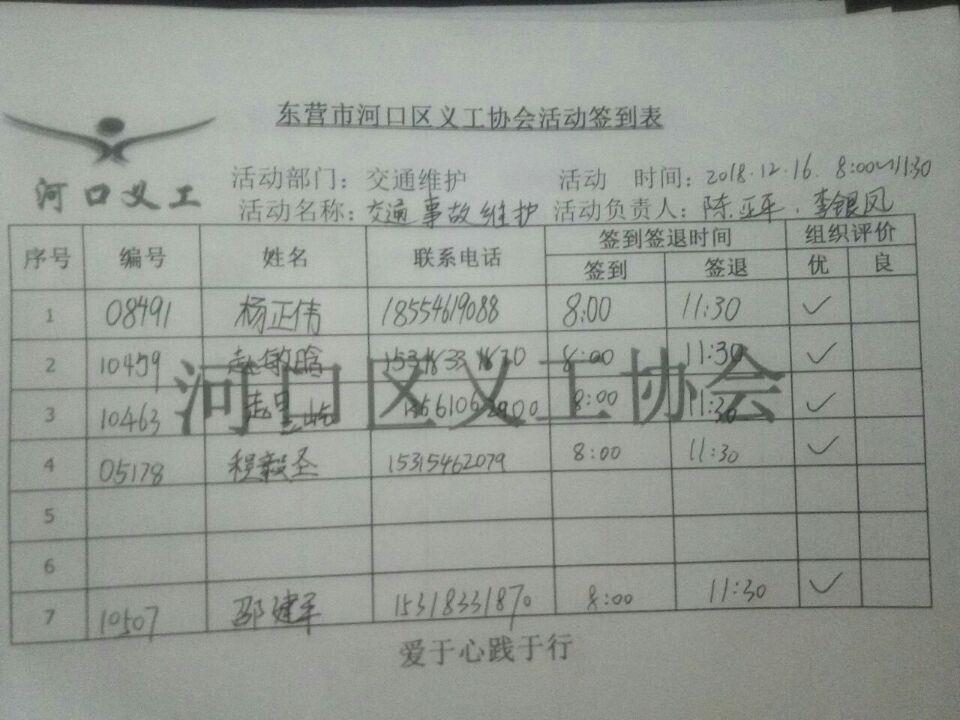 东营市河口区义工协会活动签到表
河口义工
活动部门：交通维护 活动 时间：2018.12.16. 8:00~11:30
活动名称：交通事故维护 活动负责人：陈亚军.李银凤
序号 编号 姓名 联系电话 签到签退时间 组织评价
签到 签退 优 良
1 08491 杨正伟 18554619088 8:00 11:30 ✓
2 10459 赵敏晗 8:00 11:30 ✓
3 10463 8:00 11:30 ✓
4 05178 程毅圣 15315462079 8:00 11:30 ✓
5
6
7 10507 邵建军 15318331870 8:00 11:30 ✓
河口区义工协会
爱于心践于行